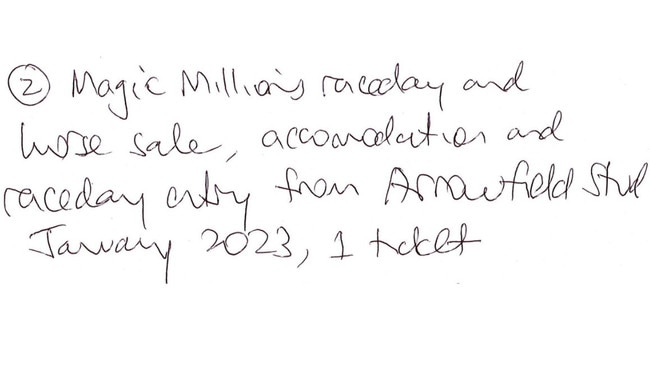 ② Magic Millions raceday and
horse sale, accomodation and
raceday entry from Arrowfield Stud
January 2023, 1 ticket